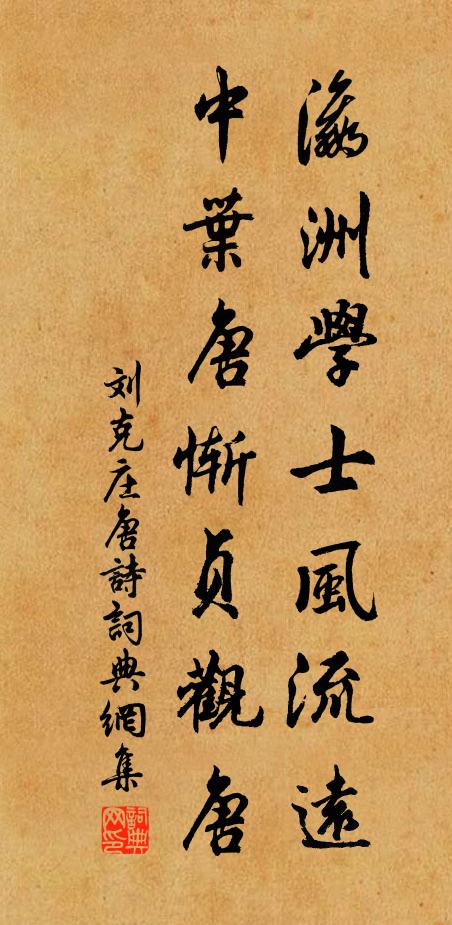 瀛洲學士風流遠
中葉唐慚貞觀唐
刘克庄唐詩詞典網集
詞典网印